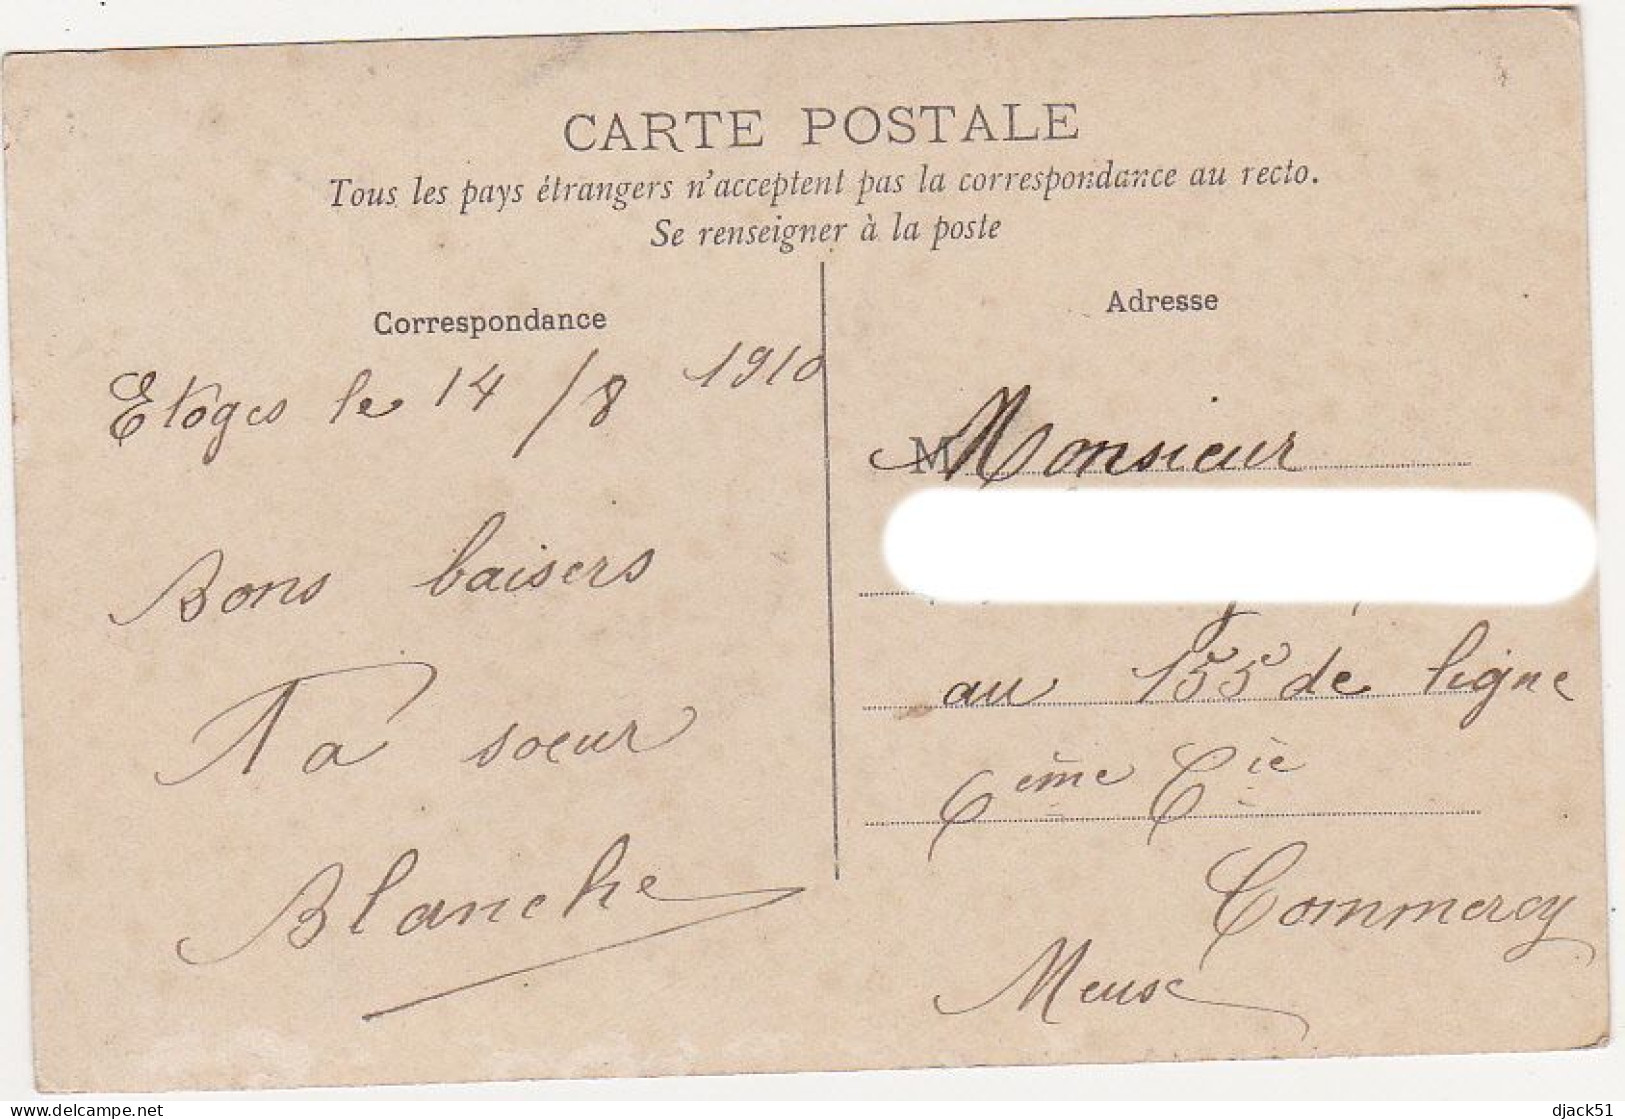 CARTE POSTALE
Tous les pays étrangers n'acceptent pas la correspondance au recto.
Se renseigner à la poste
Correspondance
Etoges le 14/8 1910
Bons baisers
Ta soeur
Blanche
Adresse
M Monsieur
au 155 de ligne
6ème Cie
Commercy
Meuse
delcampe.net
djack51